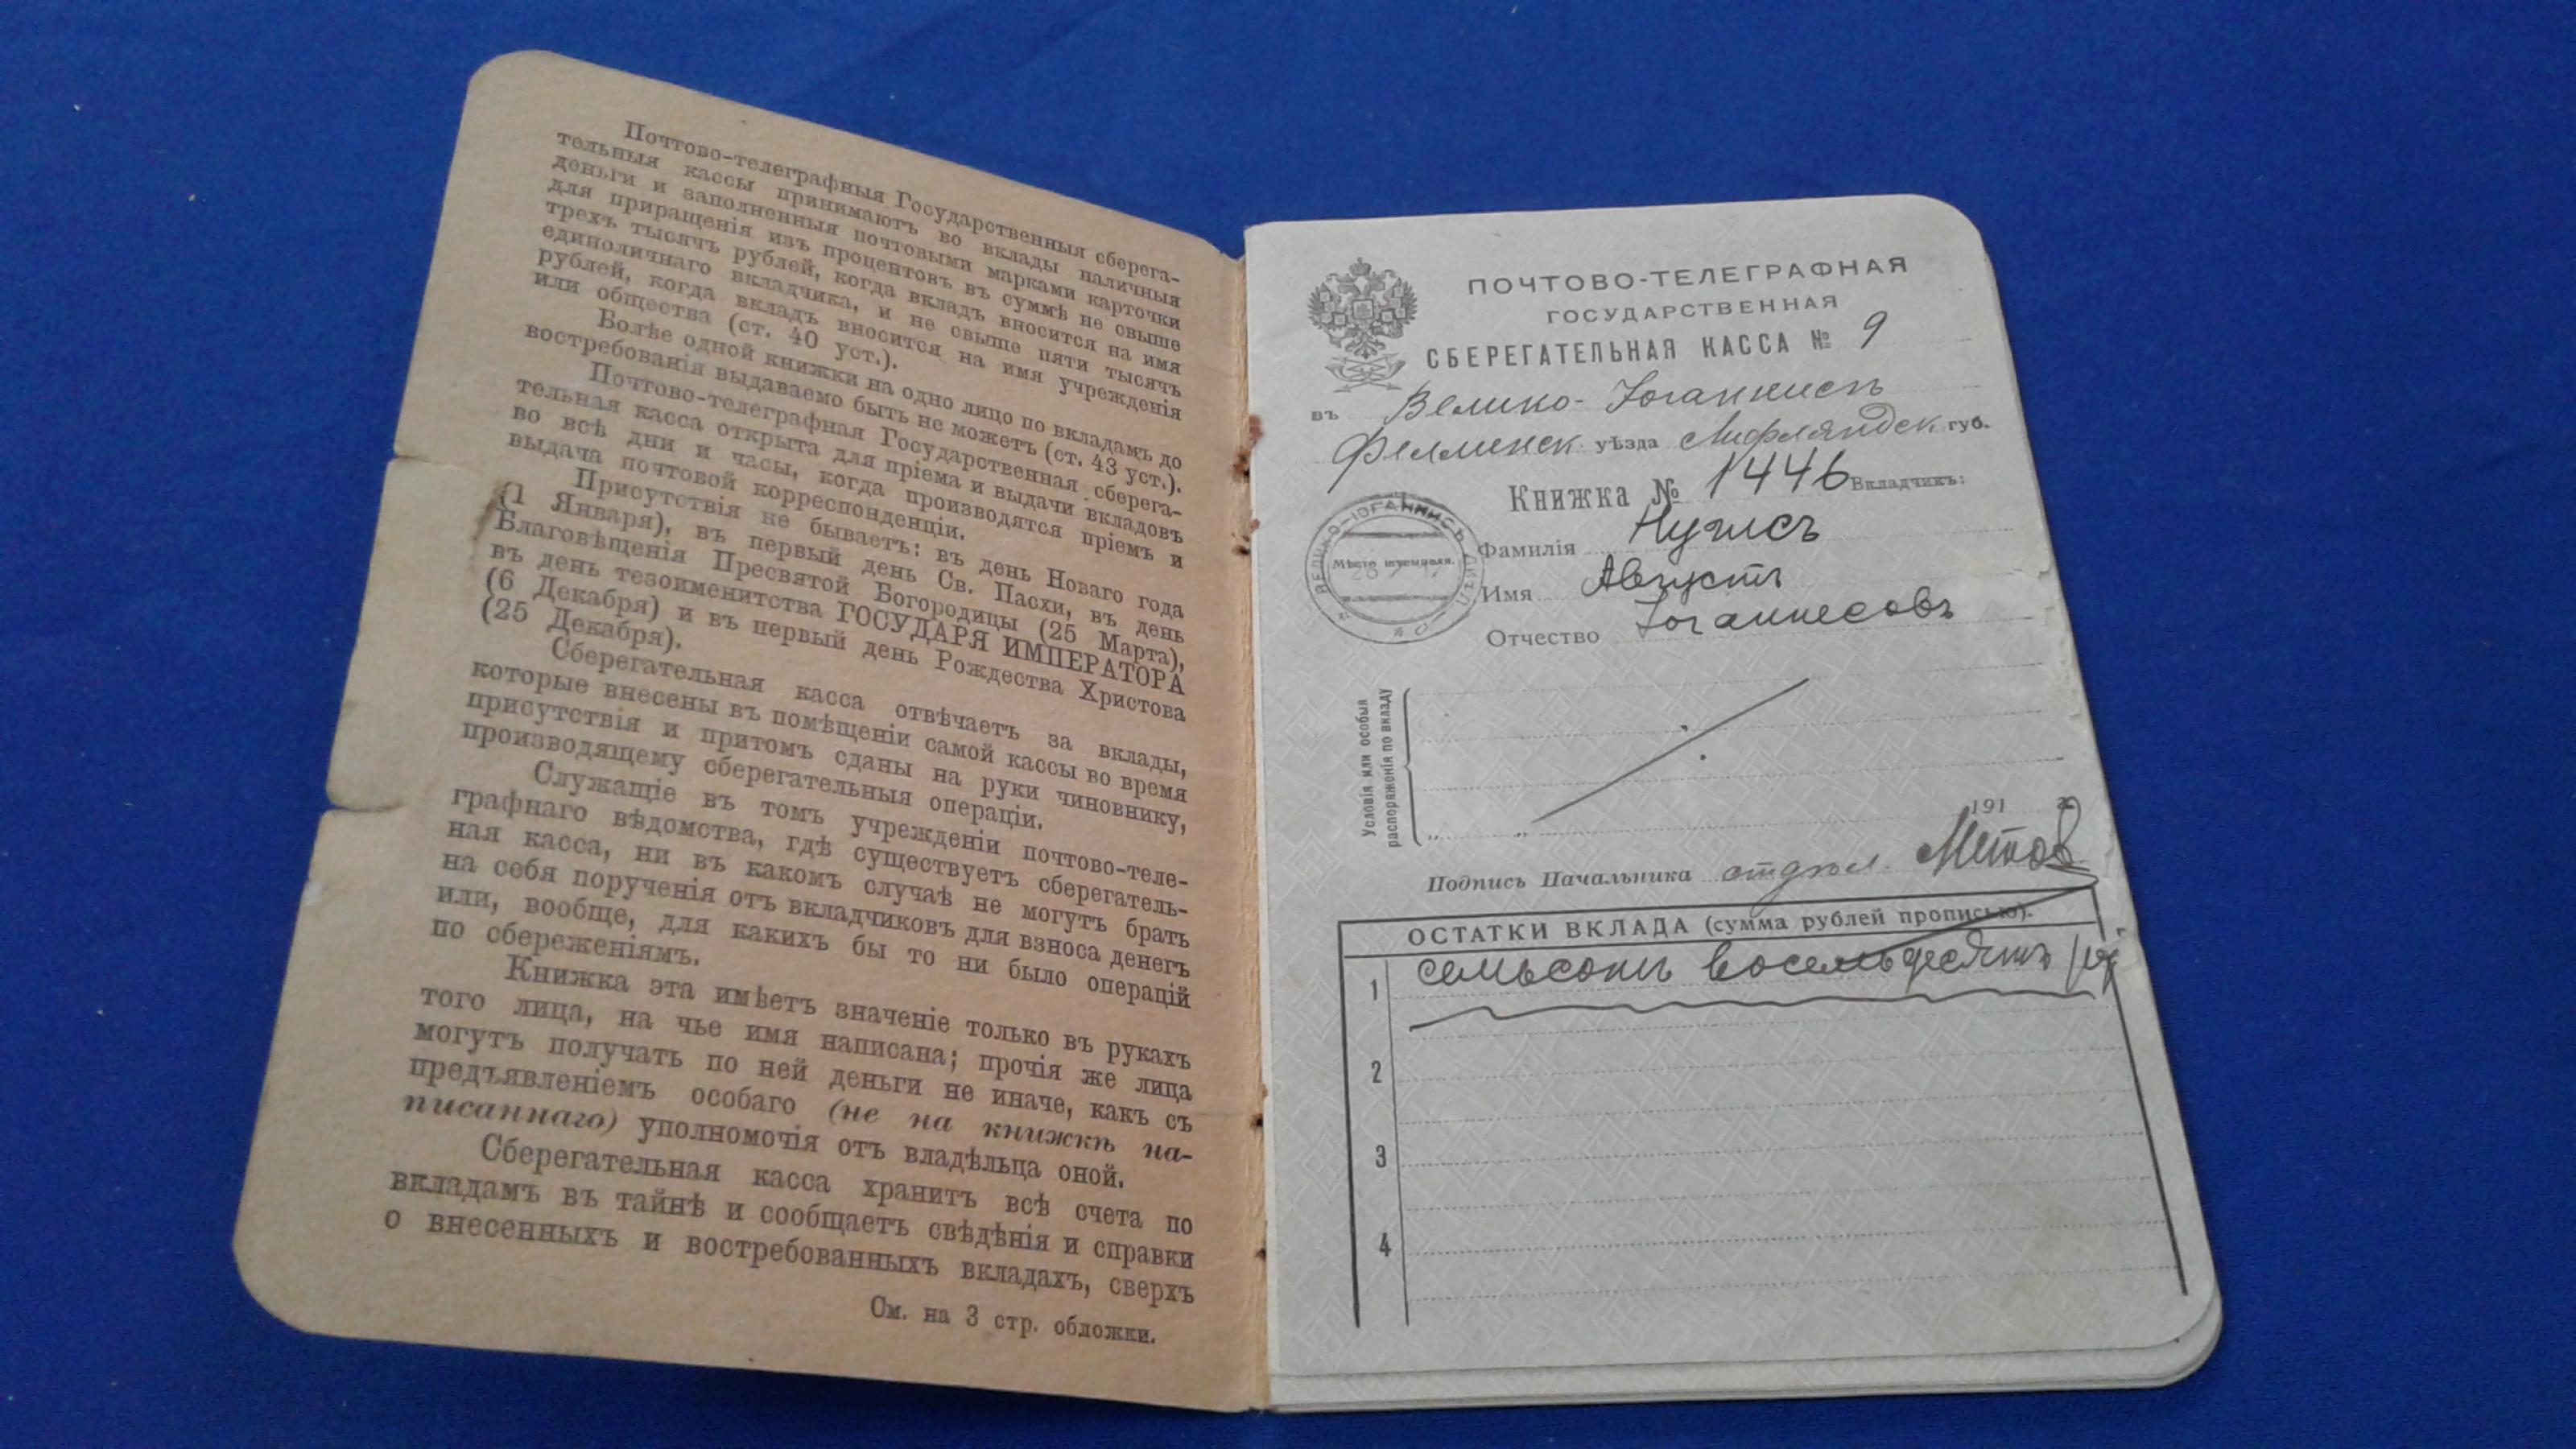 Почтово-телеграфныя Государственныя сберега-
тельныя кассы принимаютъ во вклады наличныя
деньги и заполненныя почтовыми марками карточки
для приращенія изъ процентовъ въ суммѣ не свыше
трехъ тысячъ рублей, когда вкладъ вносится на имя
единоличнаго вкладчика, и не свыше пяти тысячъ
рублей, когда вкладъ вносится на имя учрежденія
или общества (ст. 40 уст.).
Болѣе одной книжки на одно лицо по вкладамъ до
востребованія выдаваемо быть не можетъ (ст. 43 уст.).
Почтово-телеграфная Государственная сберега-
тельная касса открыта для пріема и выдачи вкладовъ
во всѣ дни и часы, когда производятся пріемъ и
выдача почтовой корреспонденціи.
Присутствія не бываетъ: въ день Новаго года
(1 Января), въ первый день Св. Пасхи, въ день
Благовѣщенія Пресвятой Богородицы (25 Марта),
въ день тезоименитства ГОСУДАРЯ ИМПЕРАТОРА
(6 Декабря) и въ первый день Рождества Христова
(25 Декабря).
Сберегательная касса отвѣчаетъ за вклады,
которые внесены въ помѣщеніи самой кассы во время
присутствія и притомъ сданы на руки чиновнику,
производящему сберегательныя операціи.
Служащіе въ томъ учрежденіи почтово-теле-
графнаго вѣдомства, гдѣ существуетъ сберегатель-
ная касса, ни въ какомъ случаѣ не могутъ брать
на себя порученія отъ вкладчиковъ для взноса денегъ
или, вообще, для какихъ бы то ни было операцій
по сбереженіямъ.
Книжка эта имѣетъ значеніе только въ рукахъ
того лица, на чье имя написана; прочія же лица
могутъ получать по ней деньги не иначе, какъ съ
предъявленіемъ особаго (не на книжкѣ на-
писаннаго) уполномочія отъ владѣльца оной.
Сберегательная касса хранитъ всѣ счета по
вкладамъ въ тайнѣ и сообщаетъ свѣдѣнія и справки
о внесенныхъ и востребованныхъ вкладахъ, сверхъ
См. на 3 стр. обложки.
ПОЧТОВО-ТЕЛЕГРАФНАЯ
ГОСУДАРСТВЕННАЯ
СБЕРЕГАТЕЛЬНАЯ КАССА № 9
въ Велико-Іоганнисъ
Феллинск. уѣзда Лифляндск. губ.
Книжка № 1446 Вкладчикъ:
ВЕЛИКО-ІОГАННИСЪ ЛИФЛ.
Мѣсто штемпеля.
Фамилія Нугисъ
Имя Августъ
Отчество Іоганнесовъ
Условія или особыя
распоряженія по вкладу
191 г.
Подпись Начальника отдѣл.
ОСТАТКИ ВКЛАДА (сумма рублей прописью).
1 семьсотъ восемьдесятъ
2
3
4